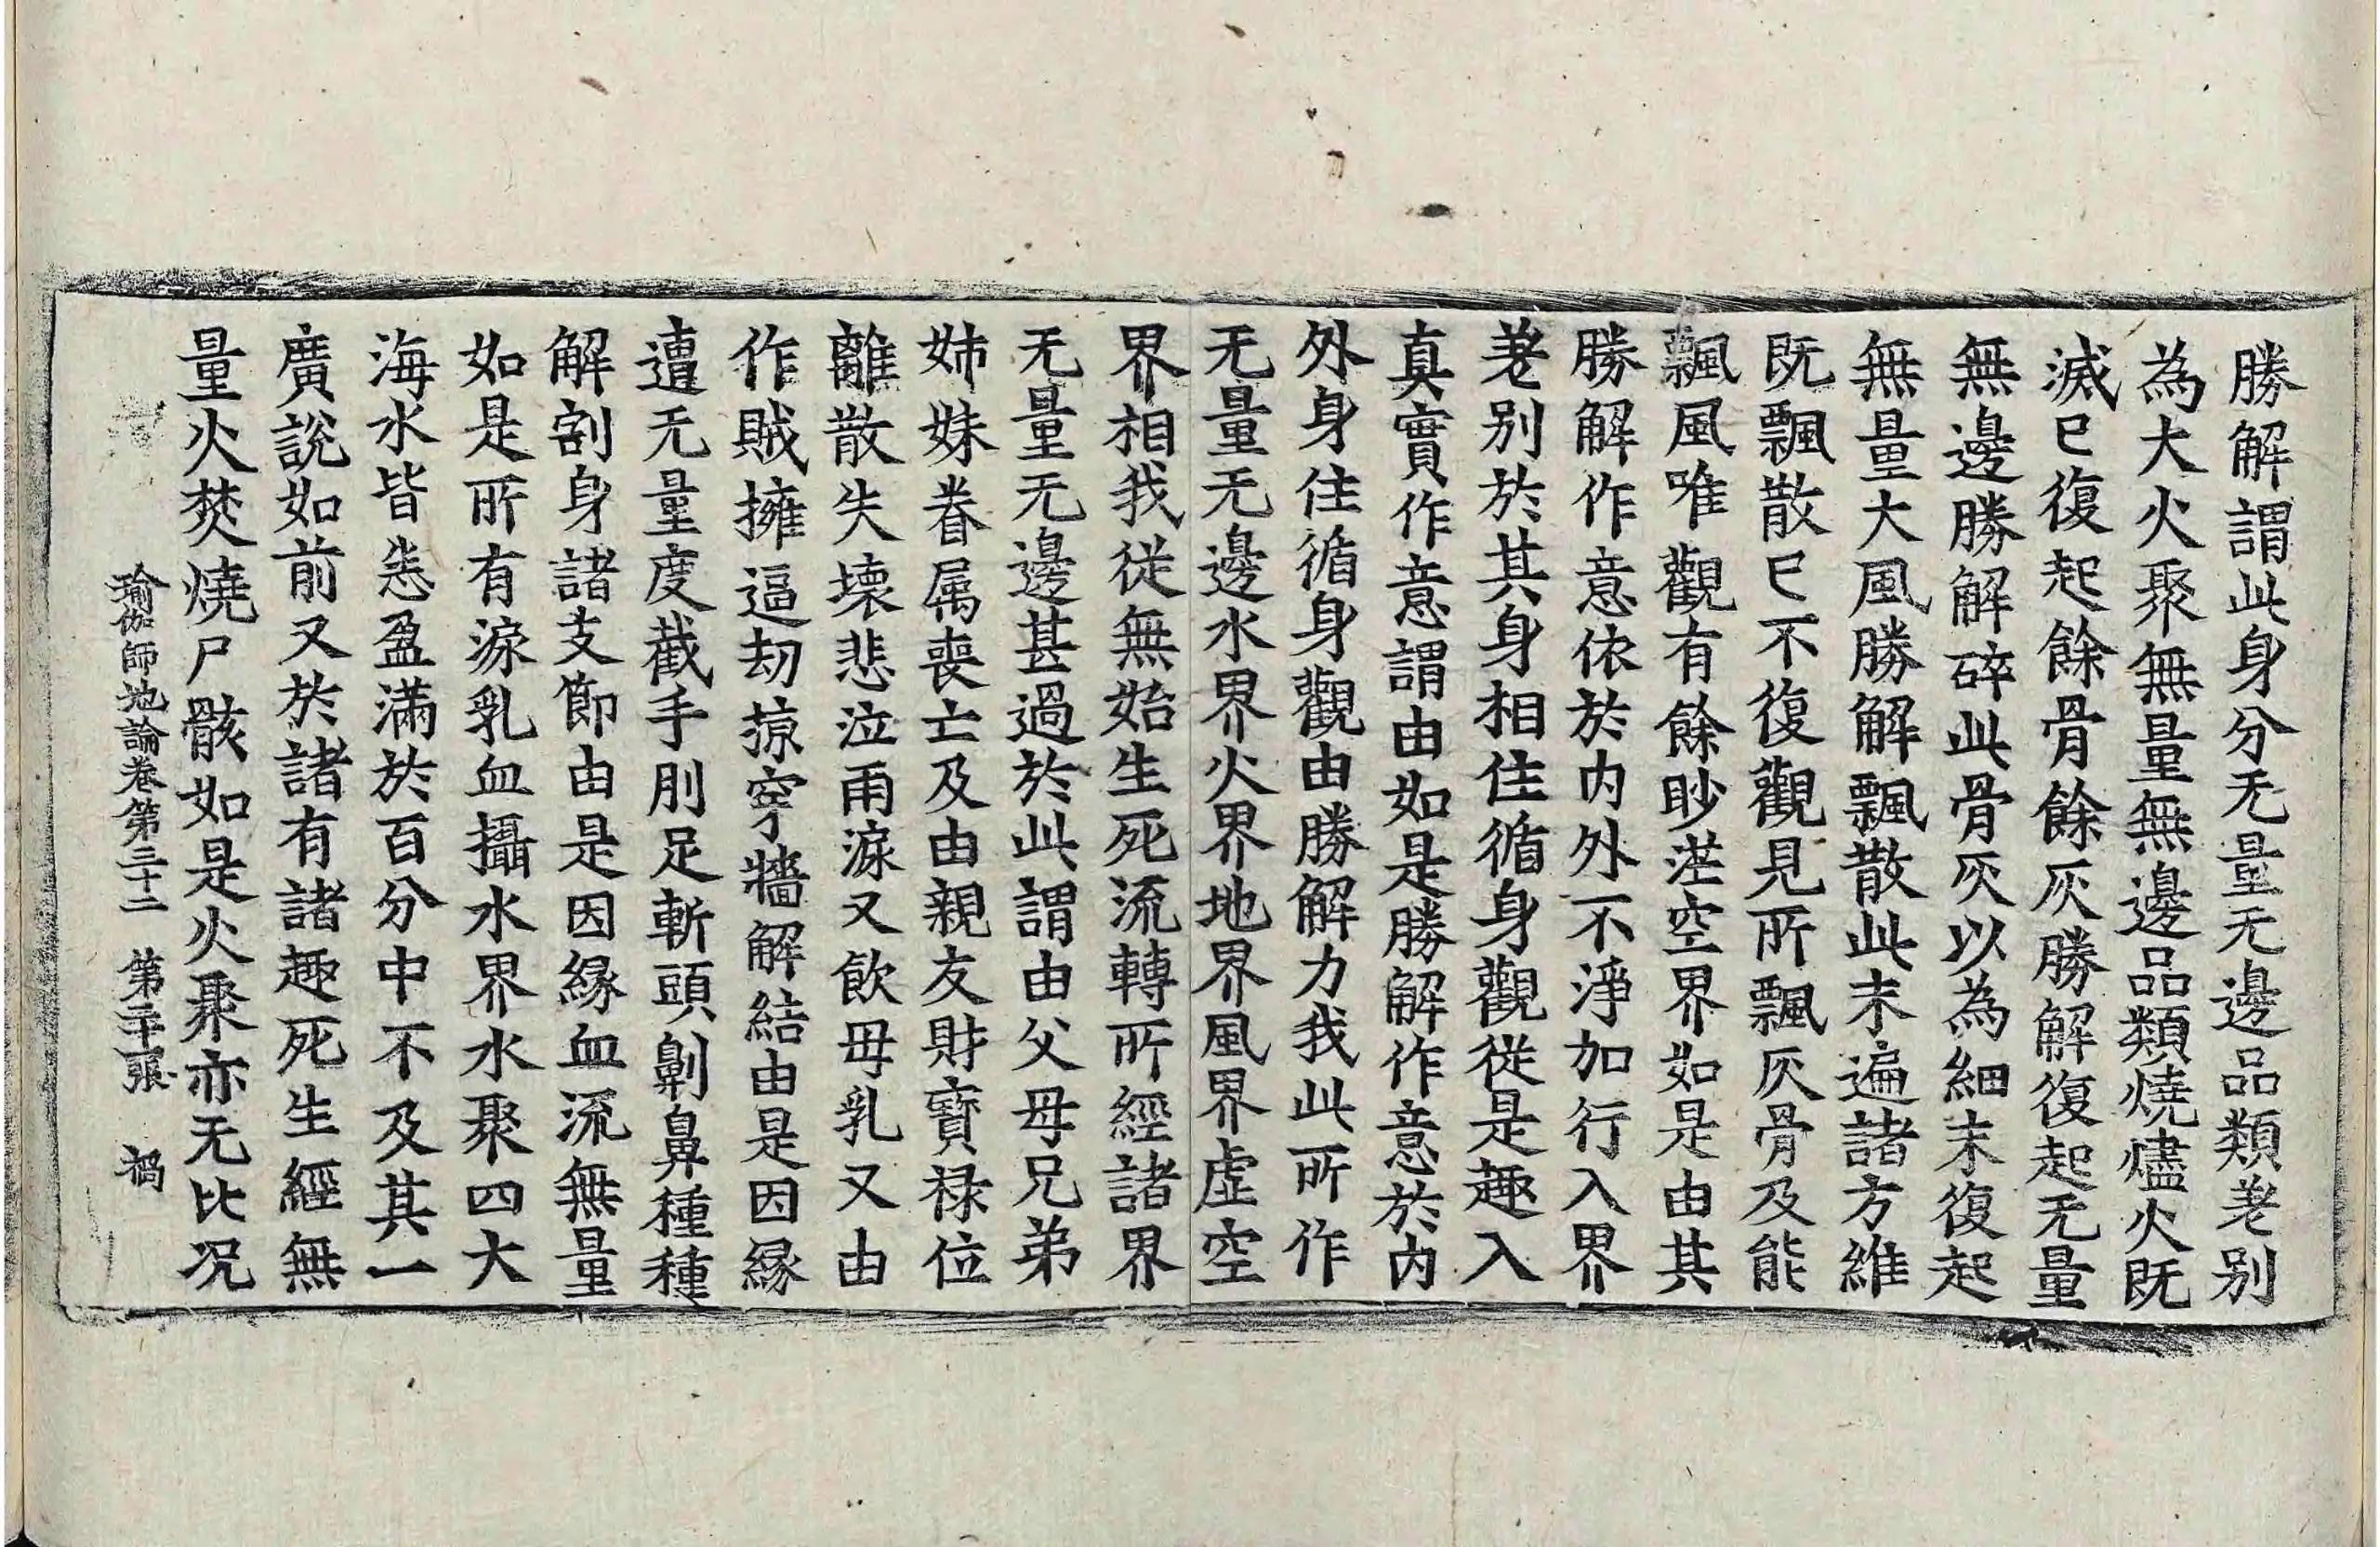 勝解謂此身分无量无邊品類差别
為大火聚無量無邊品類燒燼火既
滅已復起餘骨餘灰勝解復起无量
無邊勝解碎此骨灰以為細末復起
無量大風勝解飄散此末遍諸方維
既飄散已不復觀見所飄灰骨及能
飄風唯觀有餘眇茫空界如是由其
勝解作意依於内外不淨加行入界
差别於其身相住循身觀從是趣入
真實作意謂由如是勝解作意於内
外身住循身觀由勝解力我此所作
无量无邊水界火界地界風界虚空
界相我從無始生死流轉所經諸界
无量无邊甚過於此謂由父母兄弟
姊妹眷属喪亡及由親友財寶禄位
離散失壞悲泣雨淚又飲母乳又由
作賊擁逼劫掠穿牆解結由是因緣
遭无量度截手刖足斬頭劓鼻種種
解割身諸支節由是因緣血流無量
如是所有淚乳血攝水界水聚四大
海水皆悉盈滿於百分中不及其一
廣說如前又於諸有諸趣死生經無
量火焚燒尸骸如是火聚亦无比况
瑜伽師地論卷第三十二 第二十張